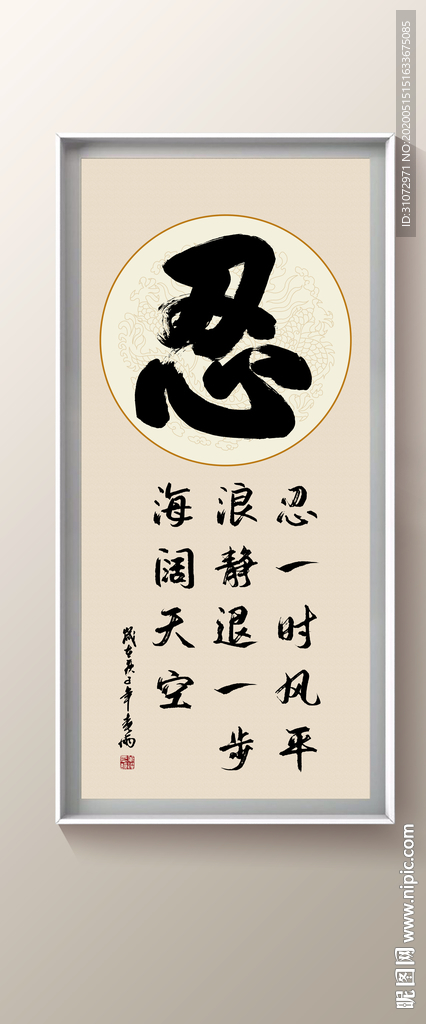 忍
忍一时风平
浪静退一步
海阔天空
岁在庚子年春雨
ID:31072971 NO:20200515151633675085
昵图网 www.nipic.com